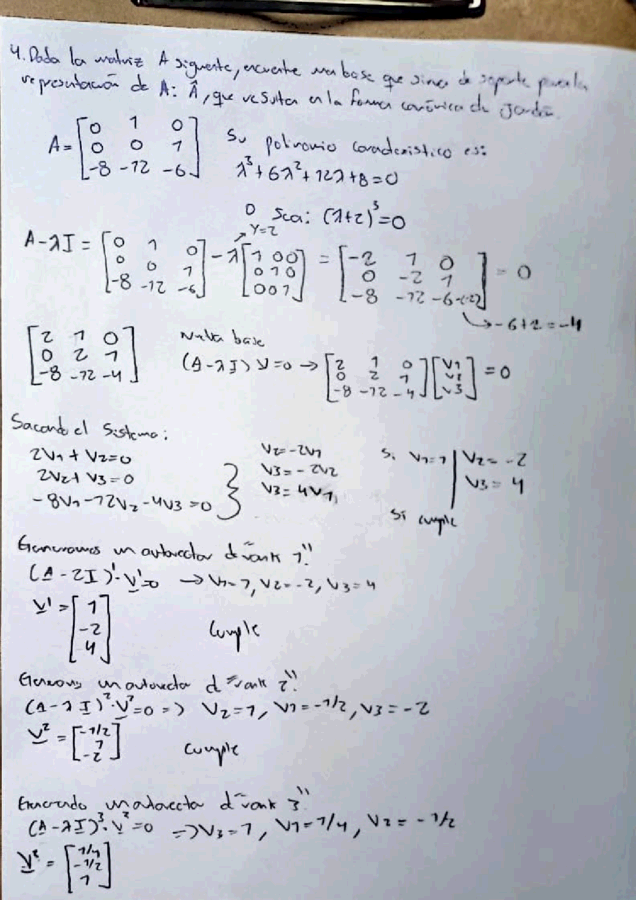 4. Dada la matriz A siguiente, encuentre una base que sirva de soporte para la
representación de A: Â, que resulta en la forma canónica de Jordán.
A = [0 1 0; 0 0 1; -8 -12 -6] Su polinomio característico es:
λ³+6λ²+12λ+8=0
O sea: (λ+2)³=0
A-λI = [0 1 0; 0 0 1; -8 -12 -6] - λ [1 0 0; 0 1 0; 0 0 1] = [-2 1 0; 0 -2 1; -8 -12 -6-(-2)] = 0
→ -6+2=-4
[2 1 0; 0 2 1; -8 -12 -4] base
(A-λI)V=0 → [2 1 0; 0 2 1; -8 -12 -4] [V1; V2; V3] = 0
Sacando el sistema:
2V1+V2=0
2V2+V3=0
-8V1-12V2-4V3=0
V2=-2V1
V3=-2V2
V3=4V1
Si V1=1 | V2=-2
V3=4
Si cumple
Generamos un autovector d "rank 1"
(A-2I)¹·V¹=0 → V1=1, V2=-2, V3=4
V¹ = [1; -2; 4] Cumple
un autovector d "rank 2"
(A-λI)²·V²=0 => V2=1, V1=-1/2, V3=-2
V² = [-1/2; 1; -2] cumple
un autovector d "rank 3"
(A-λI)³·V²=0 => V3=1, V1=1/4, V2=-1/2
V² = [1/4; -1/2; 1]